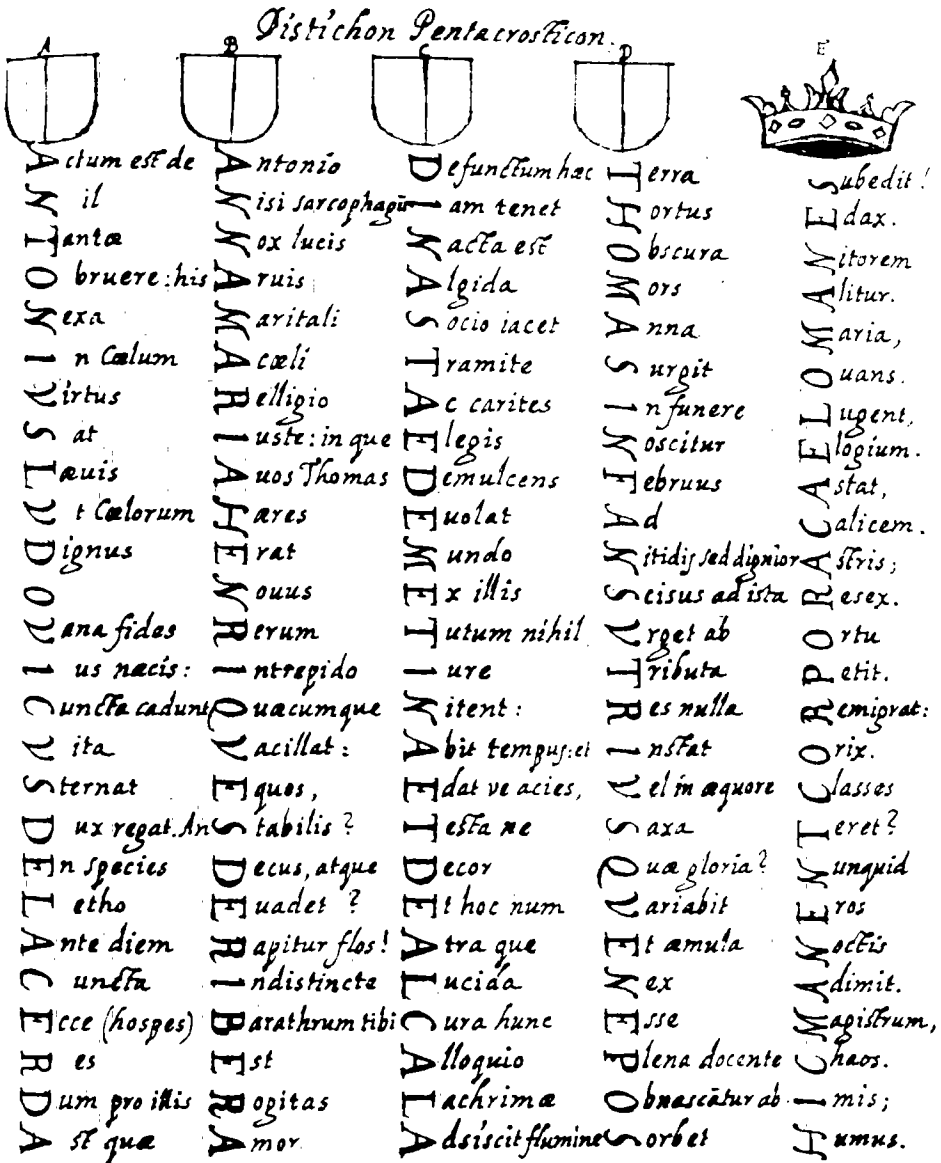 Distichon Pentacrosticon.
A B C D E
Actum est de Antonio Defunctum hæc Terra Subedit!
Nil Nisi sarcophagū Iam tenet Hortus Edax.
Tantæ Nox lucis Nacta est Obscura Nitorem
Obruere: his Aruis Algida Mors Alitur.
Nexa Maritali Socio iacet Anna Maria,
In Cælum A cæli Tramite Surgit Ouans.
Virtus Relligio Ac carites In funere Lugent,
Sat Iuste: in que Elegis Noscitur Elogium.
Læuis Auos Thomas Demulcens Februus Astat,
Vt Cælorum Hæres Euolat Ad Calicem.
Dignus Erat Mundo Nitidis sed dignior Astris;
O Nouus Ex illis Scisus ad ista Resex.
Vana fides Rerum Tutum nihil Vrget ab Ortu
Ius næcis: Intrepido Iure Tributa Petit.
Cuncta cadunt Quæcumque Nitent: Res nulla Remigrat:
Vita Vacillat: Abit tempus: et Instat Orix.
Sternat Equos, Edat ve acies, Vel in æquore Classes
Dux regat. An Stabilis? Testa ne Saxa Teret?
En species Decus, atque Decor Quæ gloria? Nunquid
Letho Euadet? Et hoc num Variabit Eros
Ante diem Rapitur flos! Atra que Et æmula Noctis
Cuncta Indistincte Lucida Nex Adimit.
Ecce (hospes) Barathrum tibi Cura hunc Esse Magistrum,
Res Est Alloquio Plena docente Chaos.
Dum pro illis Rogitas Lachrimæ Obnascātur ab Imis;
Ast quæ Amor Adsiscit flumine Sorbet Humus.